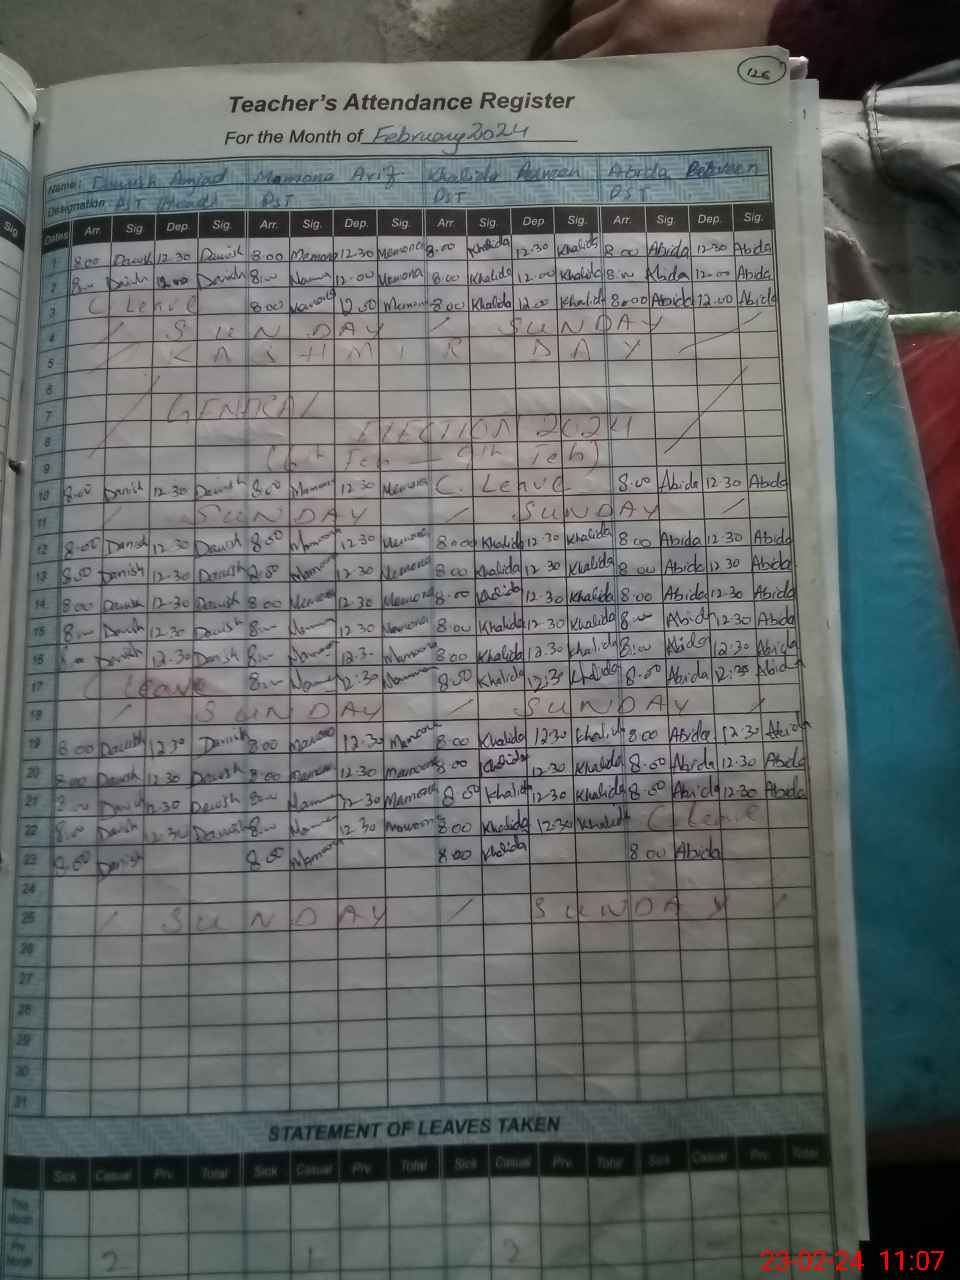 126
Teacher's Attendance Register
For the Month of February 2024
Name: Danish Amjad Mamona Arif Khalida Abida Perveen
Designation: PST (Head) PST PST PST
Dates Arr. Sig Dep. Sig. Arr. Sig. Dep. Sig. Arr. Sig. Dep Sig. Arr. Sig. Dep. Sig.
1 8.00 Danish 12.30 Danish 8.00 Mamona 12.30 Memona 8.00 Khalida 12.30 Khalida 8.00 Abida 12.30 Abida
2 8.00 Danish 12.00 Danish 8.00 Mamona 12.00 Memona 8.00 Khalida 12.00 Khalida 8.00 Abida 12.00 Abida
3 C Leave 8.00 Mamona Mamona 8.00 Khalida 12.00 Khalida 8.00 Abida 12.00 Abida
4 / SUNDAY / SUNDAY /
5 / KASHMIR DAY /
6
7 GENERAL
8 ELECTION 2024
9 (6th Feb — 9th Feb)
10 8.00 Danish 12.30 Danish 8.00 Mamona 12.30 Memona C. Leave 8.00 Abida 12.30 Abida
11 / SUNDAY / SUNDAY /
12 8.00 Danish 12.30 Danish 8.00 Memona 12.30 Memona 8.00 Khalida 12.30 Khalida 8.00 Abida 12.30 Abida
13 8.00 Danish 12.30 Danish 8.00 Mamona 12.30 Memona 8.00 Khalida 12.30 Khalida 8.00 Abida 12.30 Abida
14 8.00 Danish 12.30 Danish 8.00 Memona 12.30 Memona 8.00 Khalida 12.30 Khalida 8.00 Abida 12.30 Abida
15 8.00 Danish 12.30 Danish 8.00 Mamona 12.30 Mamona 8.00 Khalida 12.30 Khalida 8.00 Abida 12.30 Abida
16 8.00 Danish 12.30 Danish 8.00 Mamona 12.30 Mamona 8.00 Khalida 12.30 Khalida 8.00 Abida 12.30 Abida
17 C Leave 8.00 Mamona 12.30 Mamona 8.00 Khalida 12.30 Khalida 8.00 Abida 12.30 Abida
18 / SUNDAY / SUNDAY /
19 8.00 Danish 12.30 Danish 8.00 Mamona 12.30 Mamona 8.00 Khalida 12.30 Khalida 8.00 Abida 12.30 Abida
20 8.00 Danish 12.30 Danish 8.00 Mamona 12.30 Mamona 8.00 Khalida 12.30 Khalida 8.00 Abida 12.30 Abida
21 8.00 Danish 12.30 Danish 8.00 Mamona 12.30 Mamona 8.00 Khalida 12.30 Khalida 8.00 Abida 12.30 Abida
22 8.00 Danish 12.30 Danish 8.00 Mamona 12.30 Mamona 8.00 Khalida 12.30 Khalida C. Leave
23 8.00 Danish 8.00 Mamona 8.00 Khalida 8.00 Abida
24
25 / SUNDAY / SUNDAY /
26
27
28
29
30
31
STATEMENT OF LEAVES TAKEN
Sick Casual Prv. Total Sick Casual Prv. Total Sick Casual Prv. Total Sick Casual Prv. Total
This Month
Pre Month 2 1 2
Sig
23-02-24 11:07